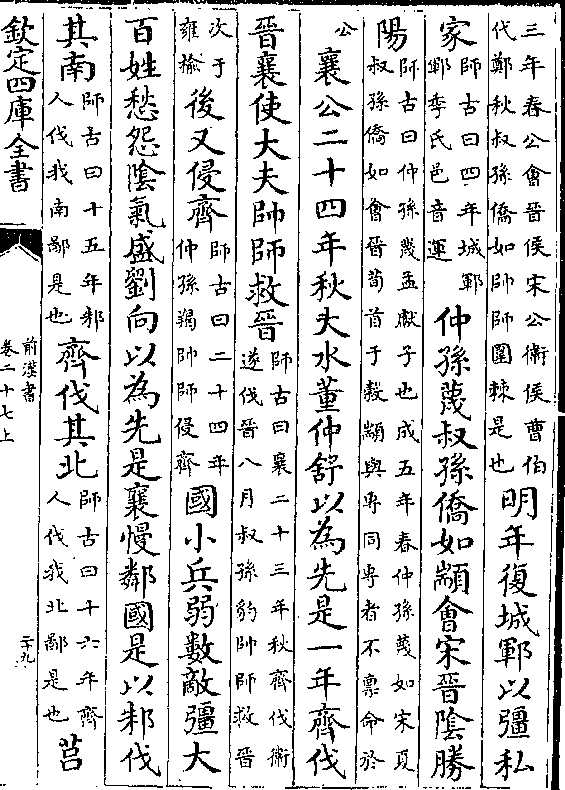 三年春公會晉侯宋公衛侯曹伯
伐鄭秋叔孫僑如帥師圍棘是也
明年復城鄆以彊私
家
師古曰四年城鄆
鄆季氏邑音運
仲孫蔑叔孫僑如顓會宋晉陰勝
陽
師古曰仲孫蔑孟獻子也成五年春仲孫蔑如宋夏
叔孫僑如會晉荀首于穀顓與專同專者不禀命於
公
襄公二十四年秋大水董仲舒以為先是一年齊伐
晉襄使大夫帥師救晉
師古曰襄二十三年秋齊伐衛
遂伐晉八月叔孫豹帥師救晉
次于
雍榆
後又侵齊
師古曰二十四年
仲孫羯帥師侵齊
國小兵弱數敵彊大
百姓愁怨陰氣盛劉向以為先是襄慢鄰國是以邾伐
其南
師古曰十五年邾
人伐我南鄙是也
齊伐其北
師古曰十六年齊
人伐我北鄙是也
莒
欽定四庫全書
前漢書
卷二十七上
二十九